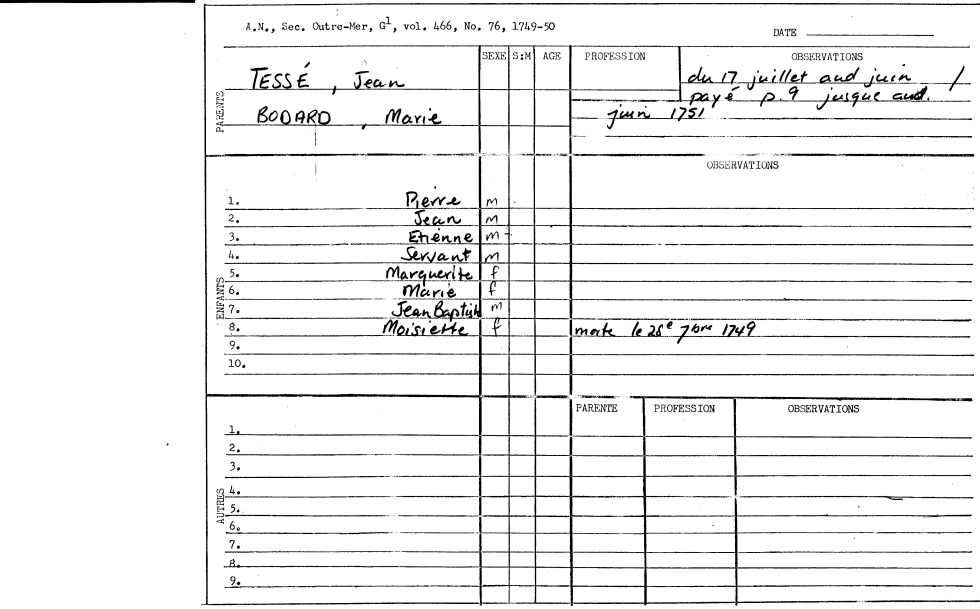 A.N., Sec. Outre-Mer, G1, vol. 466, No. 76, 1749-50
DATE
SEXE S:M AGE PROFESSION OBSERVATIONS
PARENTS
TESSÉ, Jean
du 17 juillet aud juin /
payé p.9 jusque aud.
BODARD, Marie
juin 1751
OBSERVATIONS
ENFANTS
1. Pierre m
2. Jean m
3. Etienne m
4. Servant m
5. Marguerite f
6. Marie f
7. Jean Baptiste m
8. Moisiette f morte le 28e 7bre 1749
9.
10.
PARENTE PROFESSION OBSERVATIONS
AUTRES
1.
2.
3.
4.
5.
6.
7.
8.
9.